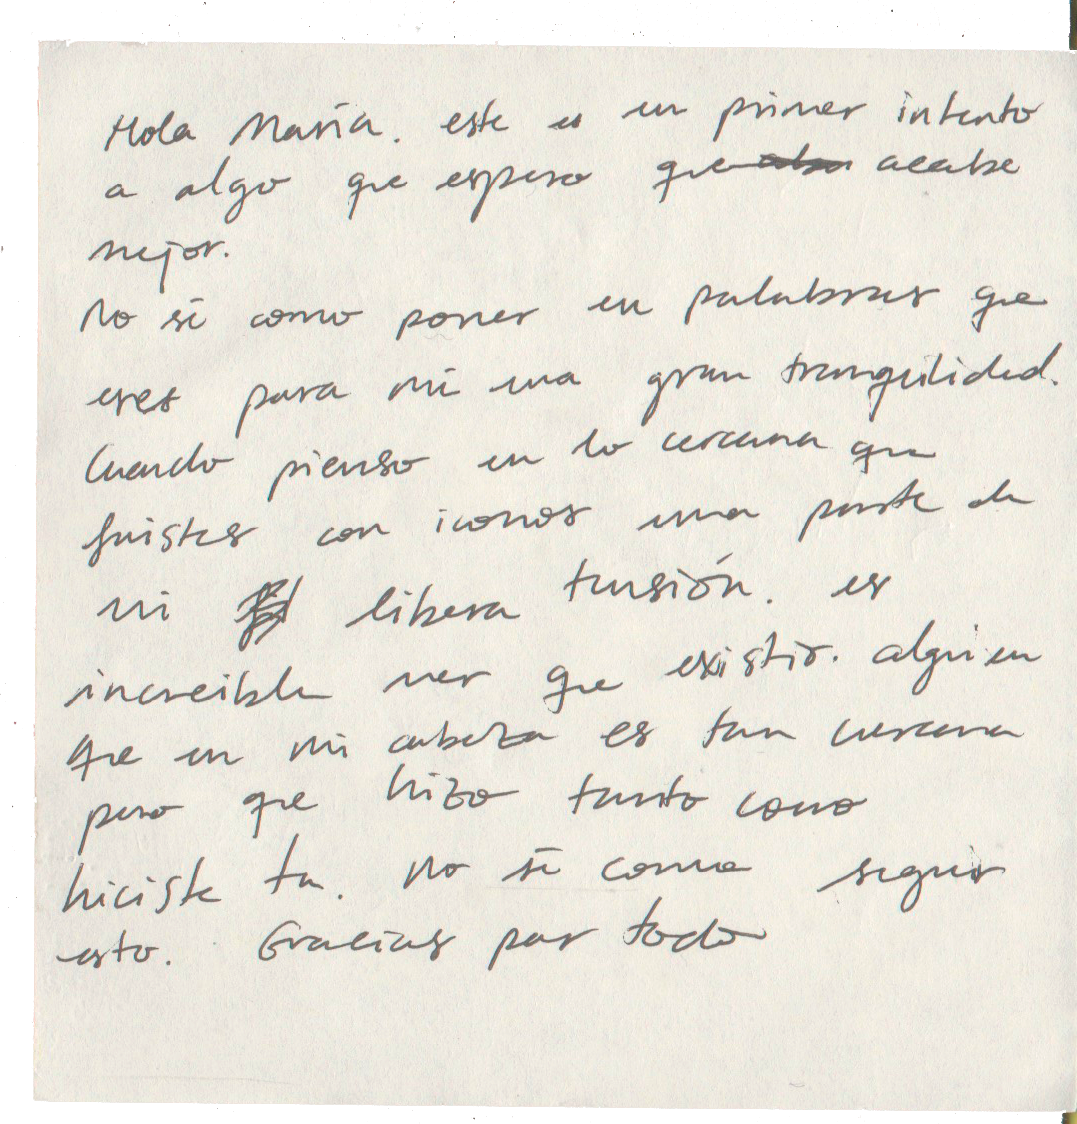 Hola María. este es un primer intento
a algo que espero acabe
mejor.
No sé como poner en palabras que
eres para mi una gran tranquilidad.
Cuando pienso en lo cercana que
fuistes con iconos una parte de
mi libera tensión. es
increible ver que existir. alguien
que en mi cabeza es tan cercana
pero que hizo tanto como
hiciste tu. No sé como seguir
esto. Gracias por todo